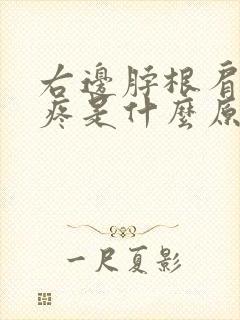 右邊脖根肩
疼是什麼原
一尺夏影